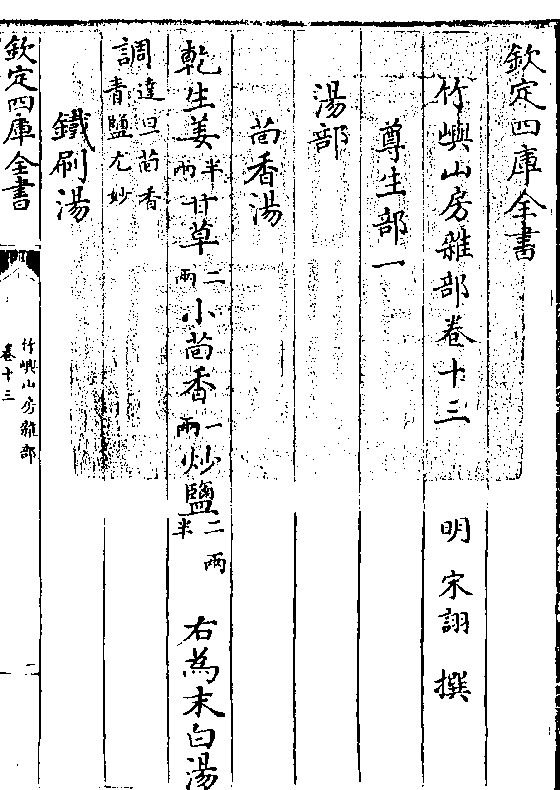 欽定四庫全書
竹嶼山房雜部卷十三 明 宋詡 撰
尊生部一
湯部
茴香湯
乾生姜半兩甘草二兩小茴香一兩炒鹽二兩半 右為末白湯
調達旦茴香青鹽尤妙
鐵刷湯
欽定四庫全書
竹嶼山房雜部
卷十三
一